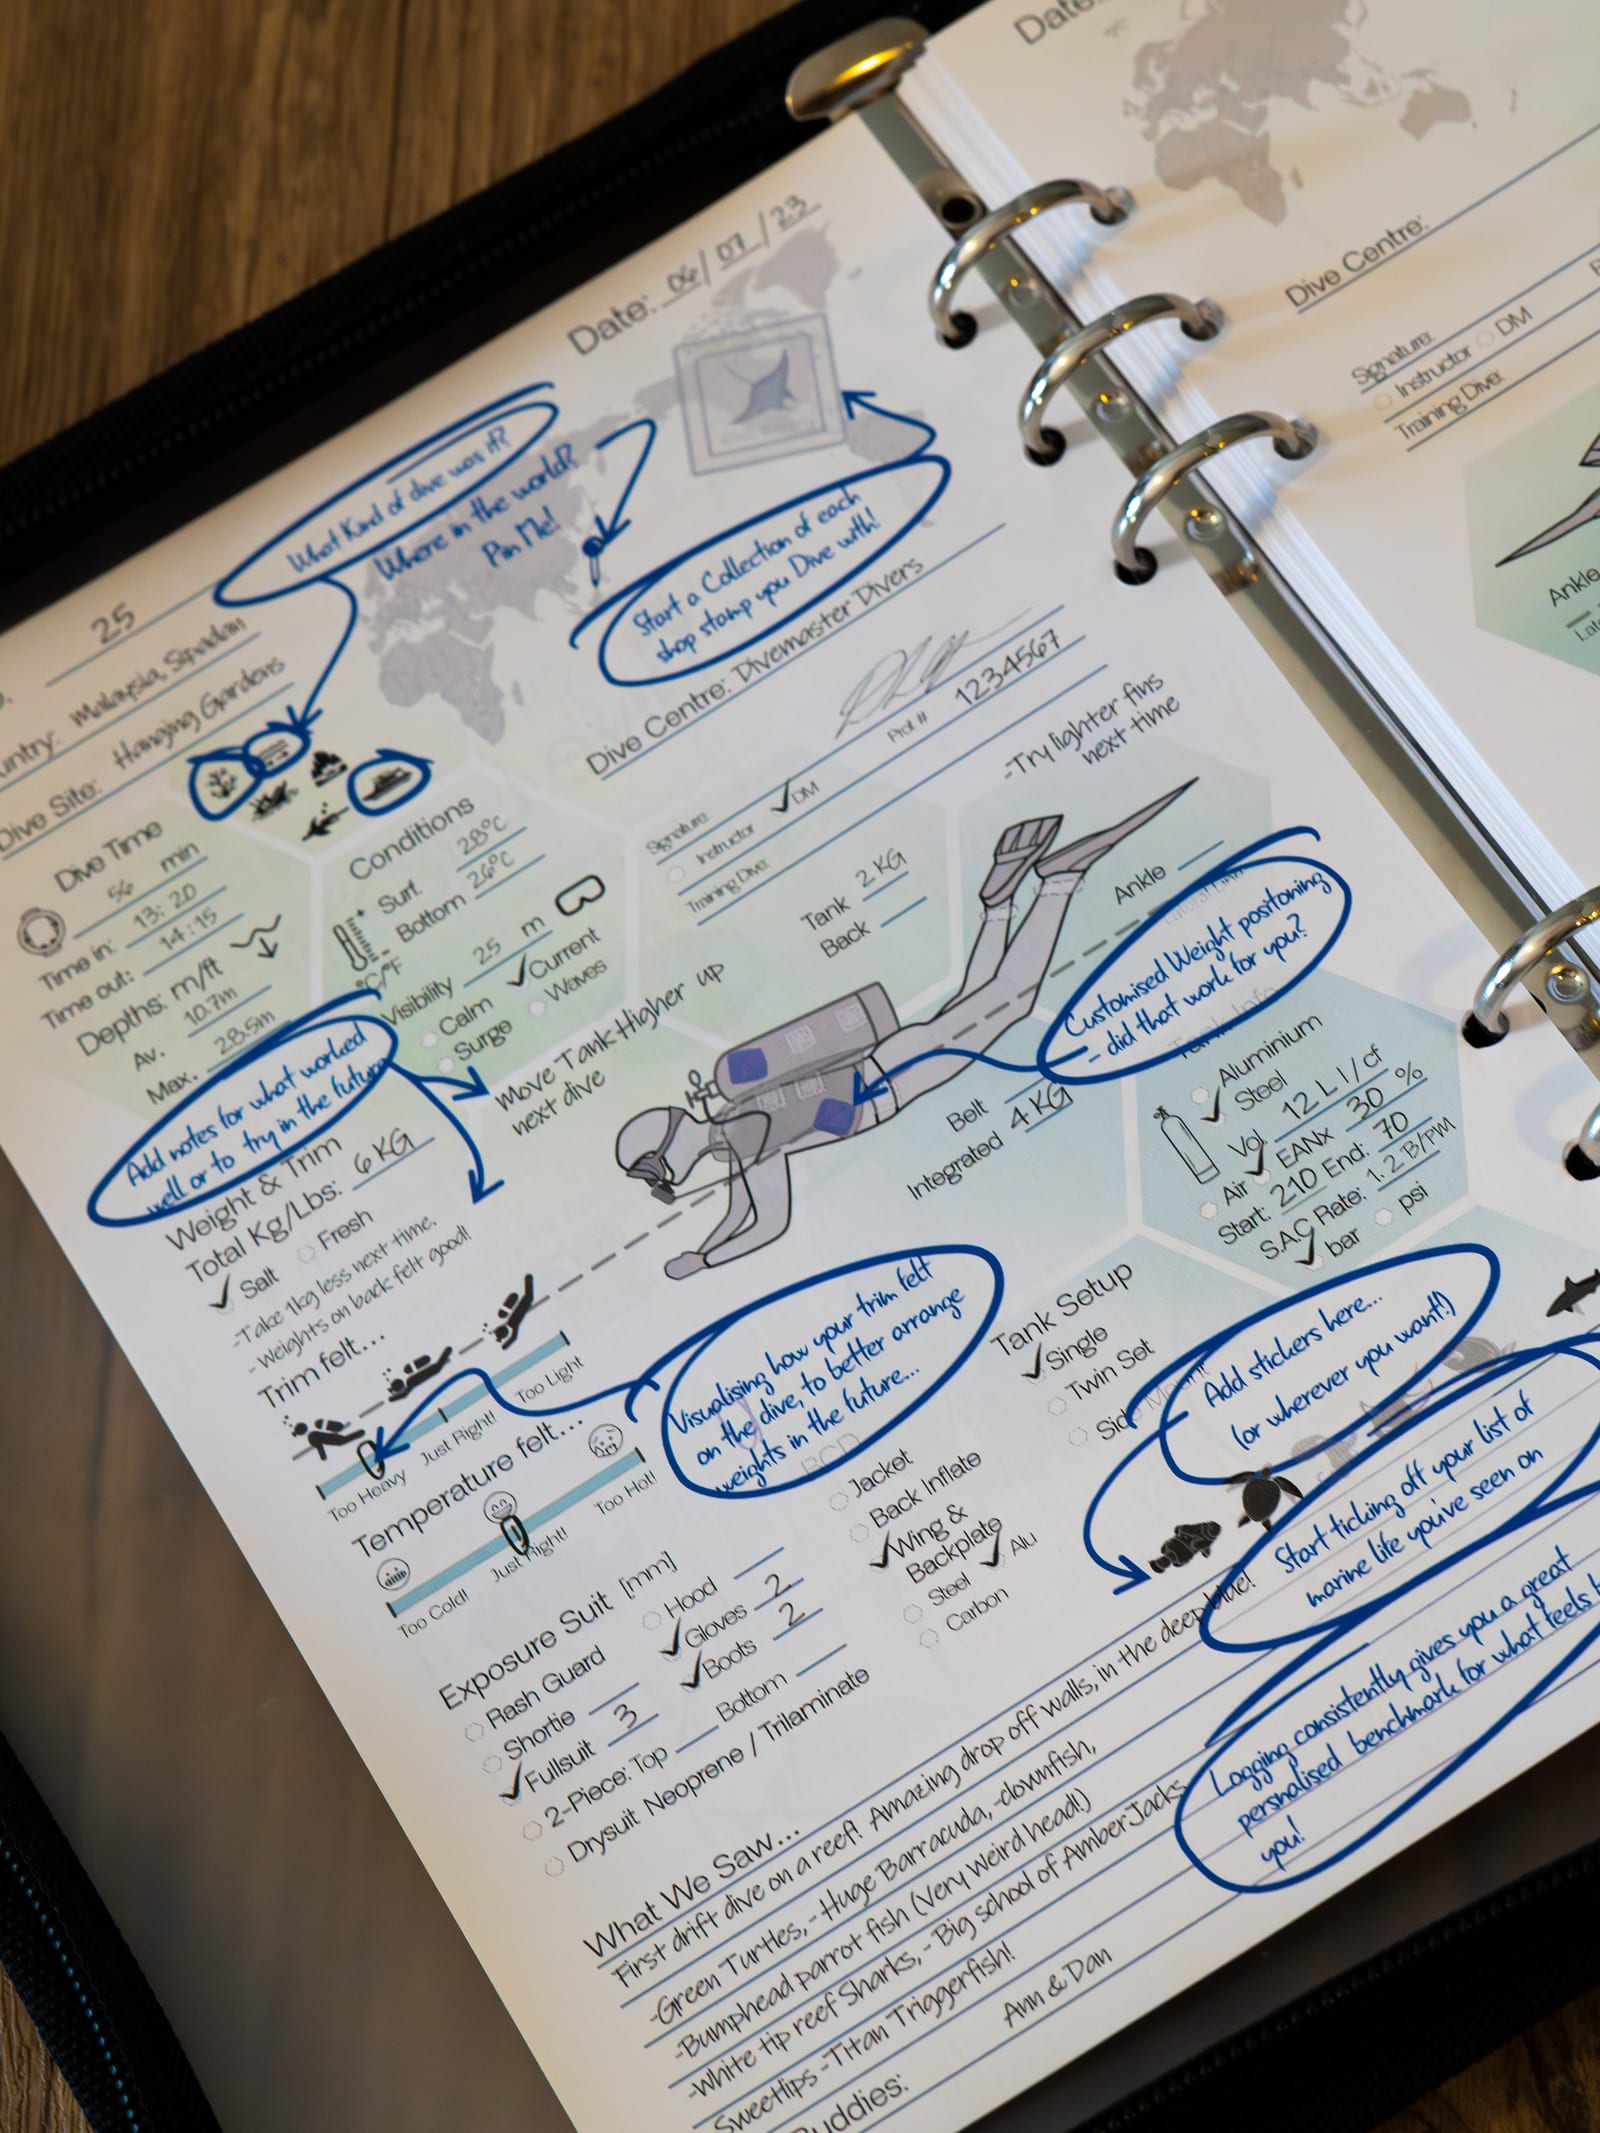 Date: 06/07/23
What Kind of dive was it?
Where in the world?
Pin Me!
Start a Collection of each
shop stamp you Dive with!
25
Malaysia, Sipadan
Dive Site: Hanging Gardens
Dive Centre: Divemaster Divers
Signature:
Instructor ✓DM
Pro# # 1234567
Training Dive:
Dive Time
56 min
Time in: 13:20
Time out: 14:15
Depths: m/ft
Av. 10.7m
Max. 28.5m
Conditions
Surf. 28°C
Bottom 26°C
°C/°F
Visibility 25 m
Calm ✓Current
Surge Waves
-Try lighter fins
next time
Tank 2 KG
Back
Ankle
Customised Weight positoning
- did that work for you?
Add notes for what worked
well or to try in the future
Move Tank Higher up
next dive
Weight & Trim
Total Kg/Lbs: 6 KG
✓Salt Fresh
-Take 1kg less next time.
-Weights on back felt good!
Belt
Integrated 4 KG
Tank Info
Aluminium
✓Steel
Vol. 12 L l/cf
Air ✓EANx 30 %
Start: 210 End: 70
S.A.C Rate: 1.2 B/PM
✓bar psi
Trim felt...
Too Heavy Just Right! Too Light
Visualising how your trim felt
on the dive, to better arrange
weights in the future...
Temperature felt...
Too Cold! Just Right! Too Hot!
Tank Setup
✓Single
Twin Set
Side Mount
Add stickers here...
(or wherever you want!)
BCD
Jacket
Back Inflate
✓Wing &
Backplate
Steel ✓Alu
Carbon
Start ticking off your list of
marine life you've seen on
Exposure Suit [mm]
Rash Guard Hood
Shortie ✓Gloves 2
✓Fullsuit 3 ✓Boots 2
2-Piece: Top Bottom
Drysuit Neoprene / Trilaminate
Logging consistently gives you a great
personalised benchmark for what feels
you!
What We Saw...
First drift dive on a reef! Amazing drop off walls, in the deep blue!
-Green Turtles, - Huge Barracuda, -clownfish,
-Bumphead parrot fish (Very Weird head!)
-White tip reef Sharks, - Big school of Amber Jacks
Sweetlips -Titan Triggerfish!
Buddies: Ann & Dan
Date:
Dive Centre:
Signature:
Instructor DM
Training Dive:
Ankle